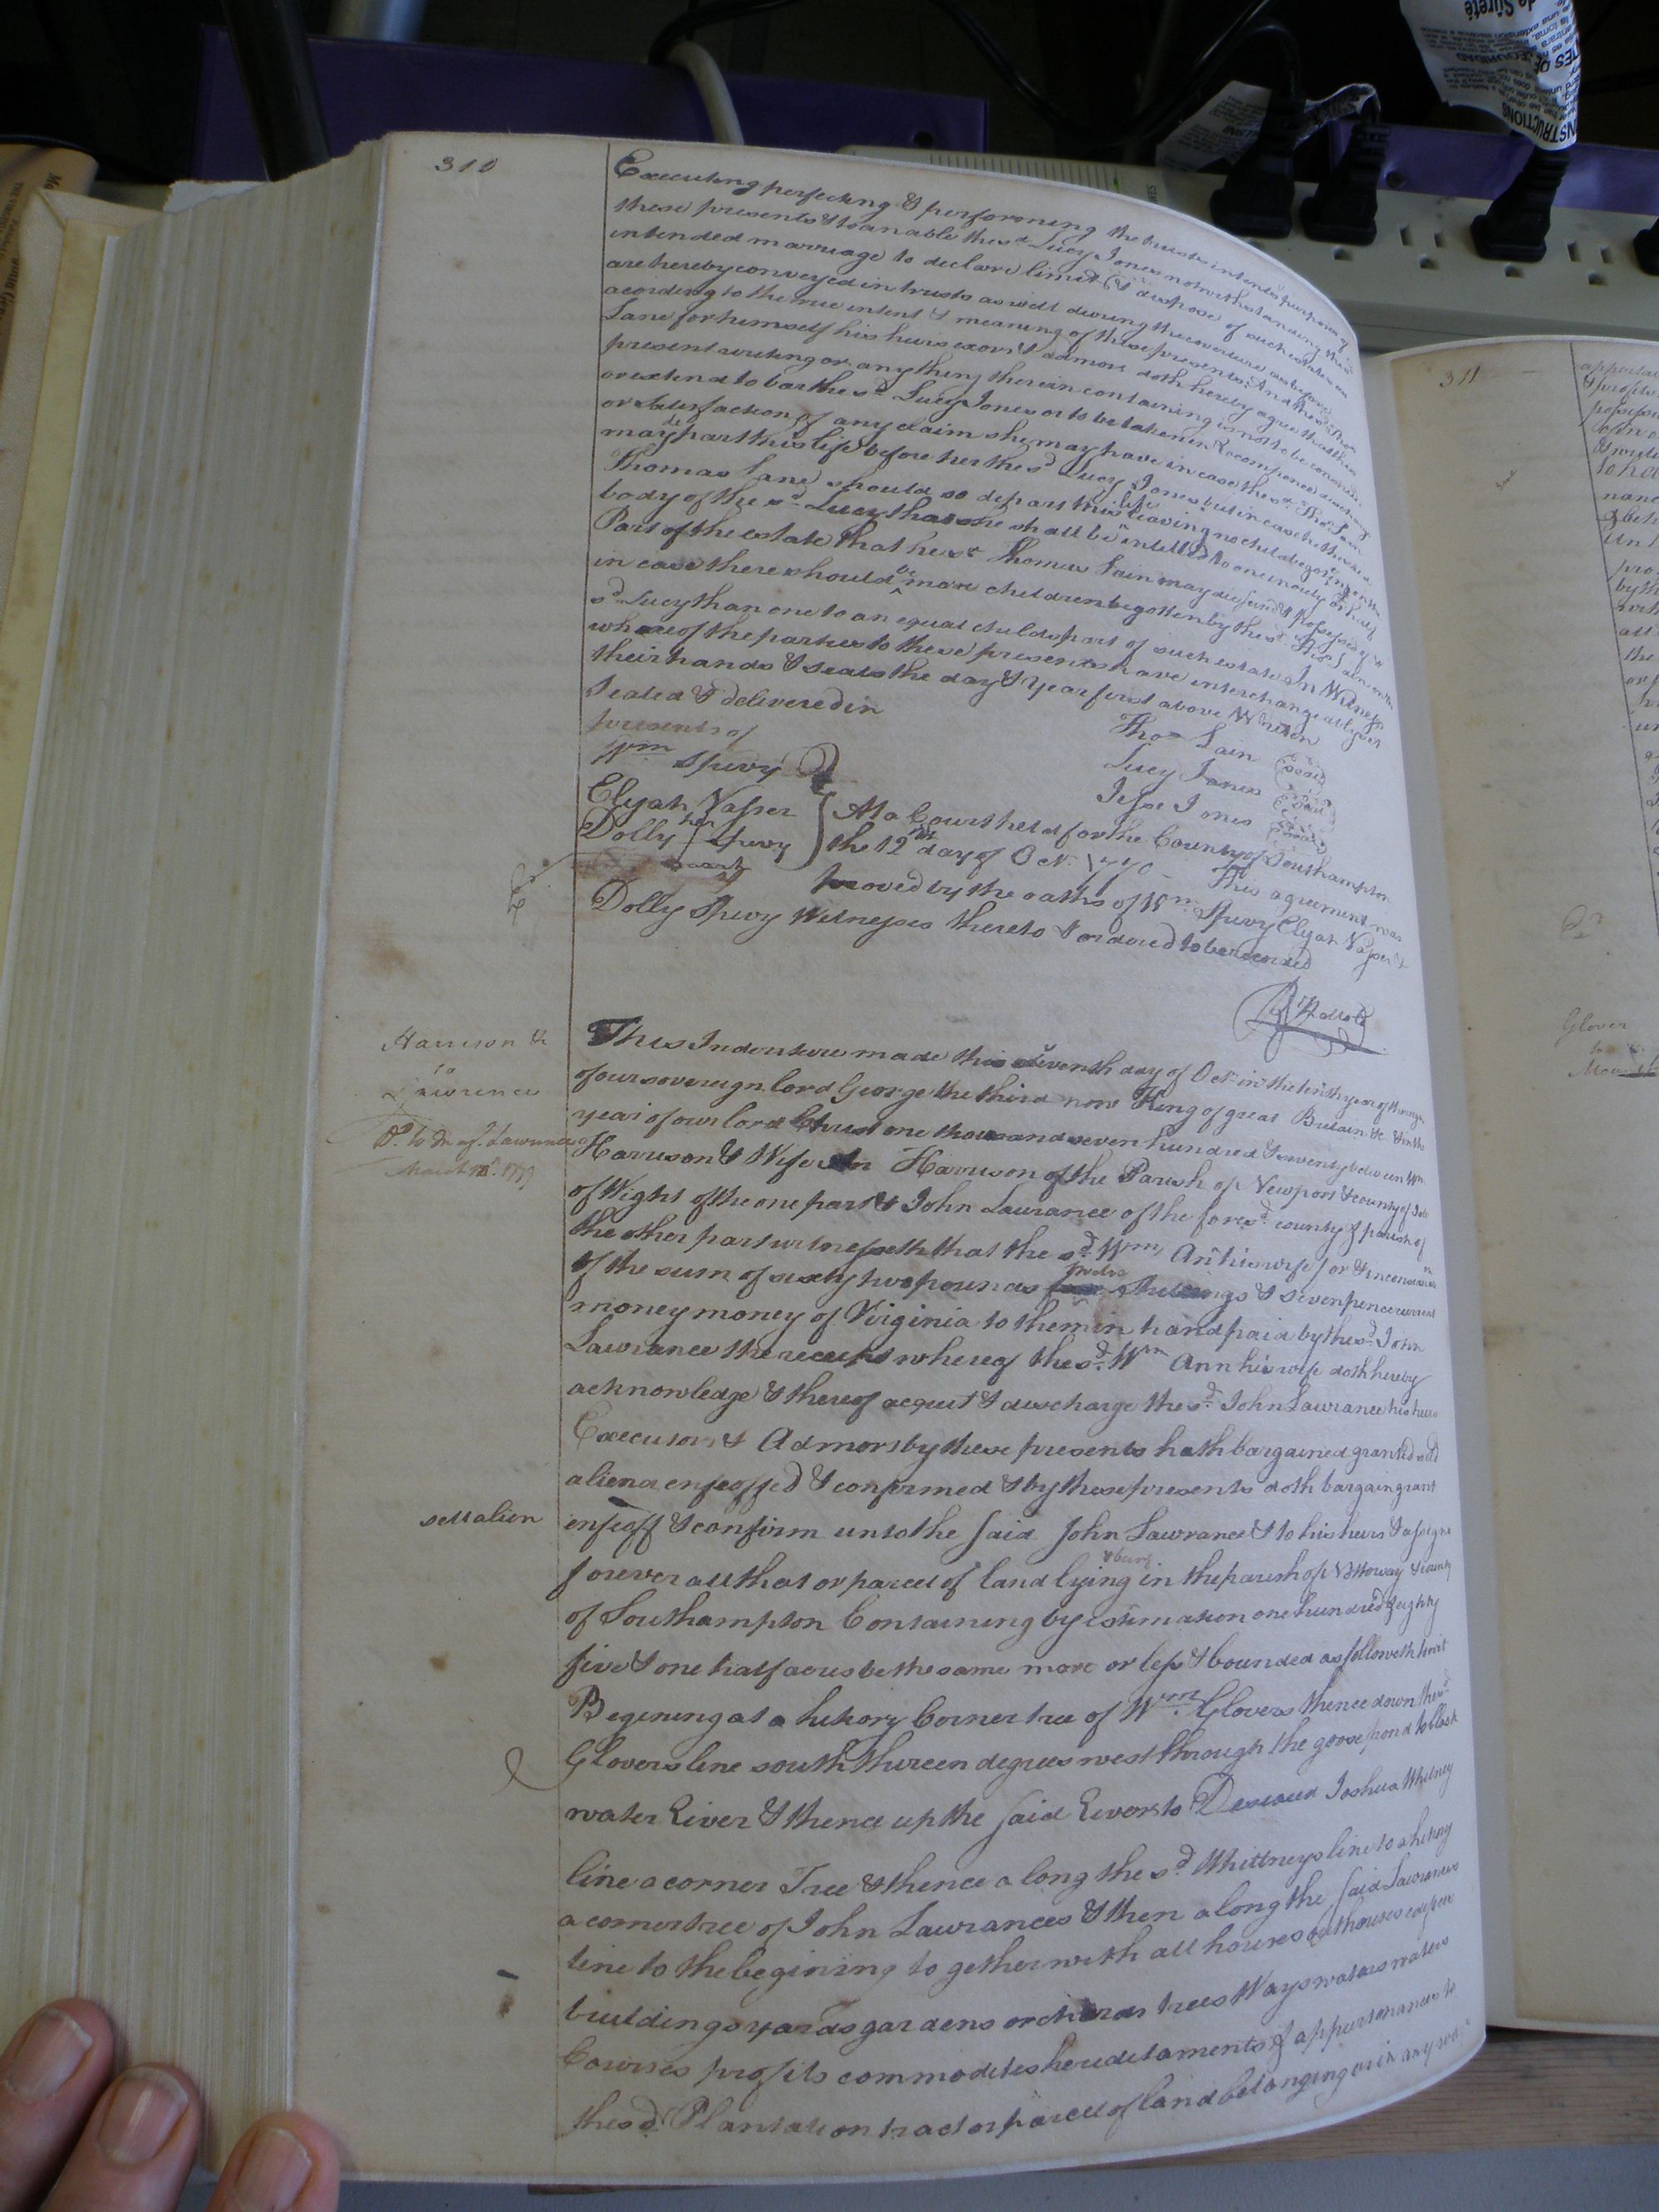 310
Executing perfecting & performing the trusts intents & purposes of
these presents & to anable the sd Lucy Jones notwithstanding the sd
intended marriage to declare limit & dispose of such estate as
are hereby conveyed in trusts as well during the coverture as before
acording to the true intent & meaning of these presents And the sd Thos
Lane for himself his heirs exors & admors doth hereby agree that this
present writing or any thing therein containing is not to be construed
or extend to bar the sd Lucy Jones or to be taken in Recompence discharge
or satisfaction of any claim she may have in case the sd Thos Lain
may depart this life before her the sd Lucy Jones but in case he the said
Thomas Lane should so depart this life leaving no child begotten on the
body of the sd Lucy that she shall be intitled to one moiety or half
Part of the estate that he sd Thomas Lain may die seized & possessed of &
in case there should be more children begotten by the sd Thos Lain on the
sd Lucy than one to an equal childs part of such estate In Witness
whereof the parties to these presents have interchangeably set
their hands & seals the day & year first above Written
Sealed & delivered in
presents of
Wm Spivy
Thos Lain Seal
Lucy Jones Seal
Jesse Jones Seal
Elijah Vasser
Dolly her Spivy
mark
At a Court held for the County of Southampton
the 12th day of Octr 1770 This agreement was
proved by the oaths of Wm Spivy Elijah Vasser &
Dolly Spivy Witnesses thereto & ordered to be recorded
Harrison &
to
Lawrence
This Indenture made this eleventh day of Octr in the tenth year of the reign
of our sovereign lord George the third now King of great Britain &c & in the
year of our lord Christ one thousand seven hundred & seventy between Wm
March 18th 1779
Harrison & Wife An Harrison of the Parish of Newport & county of Isle
of Wight of the one part & John Lawrance of the foresd county & parish of
the other part witnesseth that the sd Wm An his wife for & in consideration
of the sum of sixty two pounds twelve Shillings & sevenpence current
money money of Virginia to them in hand paid by the sd John
Lawrance the receipt whereof the sd Wm Ann his wife doth hereby
acknowledge & thereof acquit & discharge the sd John Lawrance his heirs
Executors & Admors by these presents hath bargained granted sold
aliend enfeoffed & confirmed & by these presents doth bargain grant
sell alien
enfeoff & confirm unto the said John Lawrance & to his heirs & assigns
forever all that or parcel of land lying & being in the parish of Nottoway & county
of Southampton Containing by estimation one hundred & eighty
five & one half acres be the same more or less & bounded as followeth to wit
Begining at a hickory Corner tree of Wm Glovers thence down the sd
Glovers line south thirteen degrees west through the goose pond to black
water River & thence up the said River to Deceased Joshua Whitney
line a corner Tree & thence along the sd Whittneys line to a hickory
a corner tree of John Lawrances & then along the said Lawrances
line to the begining together with all houses outhouses edifices
buildings yards gardens orchards trees Ways waters water
Courses profits commodites hereditaments & appurtenances to
the sd Plantation tract or parcel of land belonging or in any wise
311
Glover
to